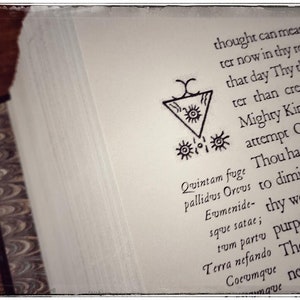 thought can mea
ter now in thy re
that day Thy th
ter than cre
Mighty Kin
attempt
Thou ha
to dimi
thy w
purp
Th
ne
Quintam fuge
pallidus Orcus
Eumenide-
sque satae;
tum partu
Terra nefando
Coeumque